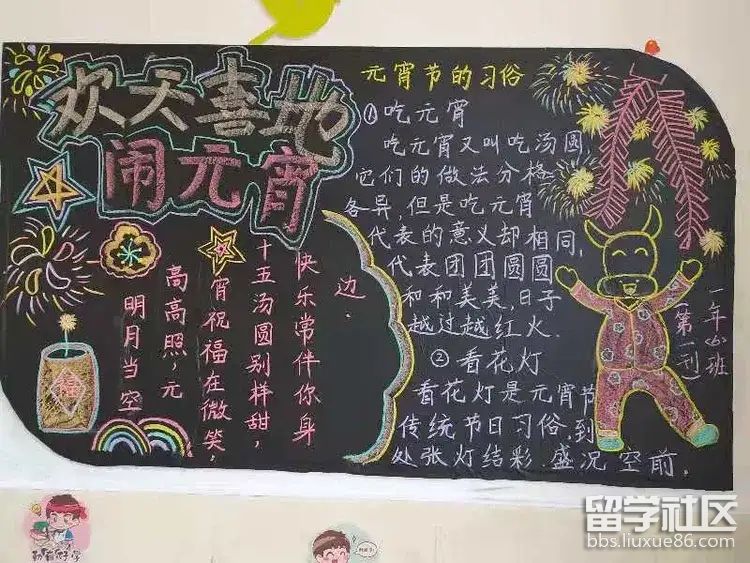 欢天喜地
闹元宵
明月当空
高高照,元
宵祝福在微笑,
十五汤圆别样甜,
快乐常伴你身
边.
福
元宵节的习俗
①吃元宵
吃元宵又叫吃汤圆,
它们的做法分格
各异,但是吃元宵
代表的意义却相同,
代表团团圆圆
和和美美,日子
越过越红火.
②看花灯
看花灯是元宵节
传统节日习俗,到
处张灯结彩 盛况空前.
一年(6)班
(第一刊)
勤奋好学
留学社区
bbs.liuxue86.com